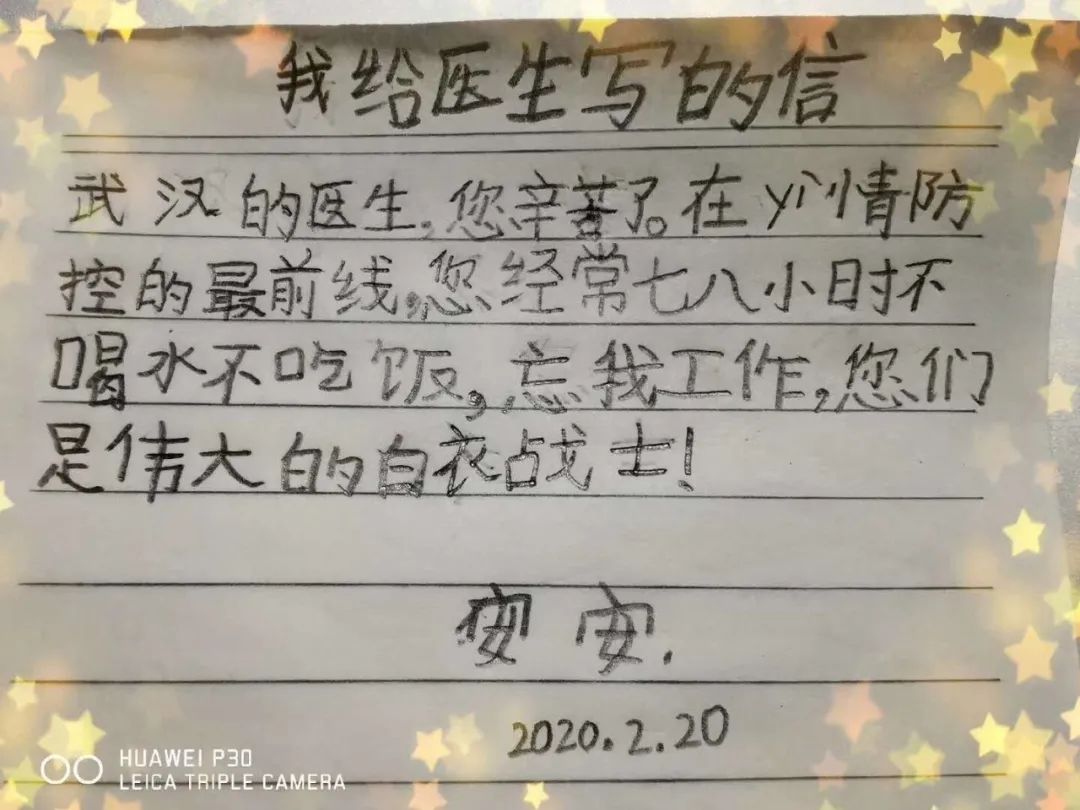 我给医生写的信
武汉的医生,您辛苦了。在yì情防
控的最前线,您经常七八小时不
喝水不吃饭,忘我工作,您们
是伟大的白衣战士!
安安.
2020.2.20
HUAWEI P30
LEICA TRIPLE CAMERA